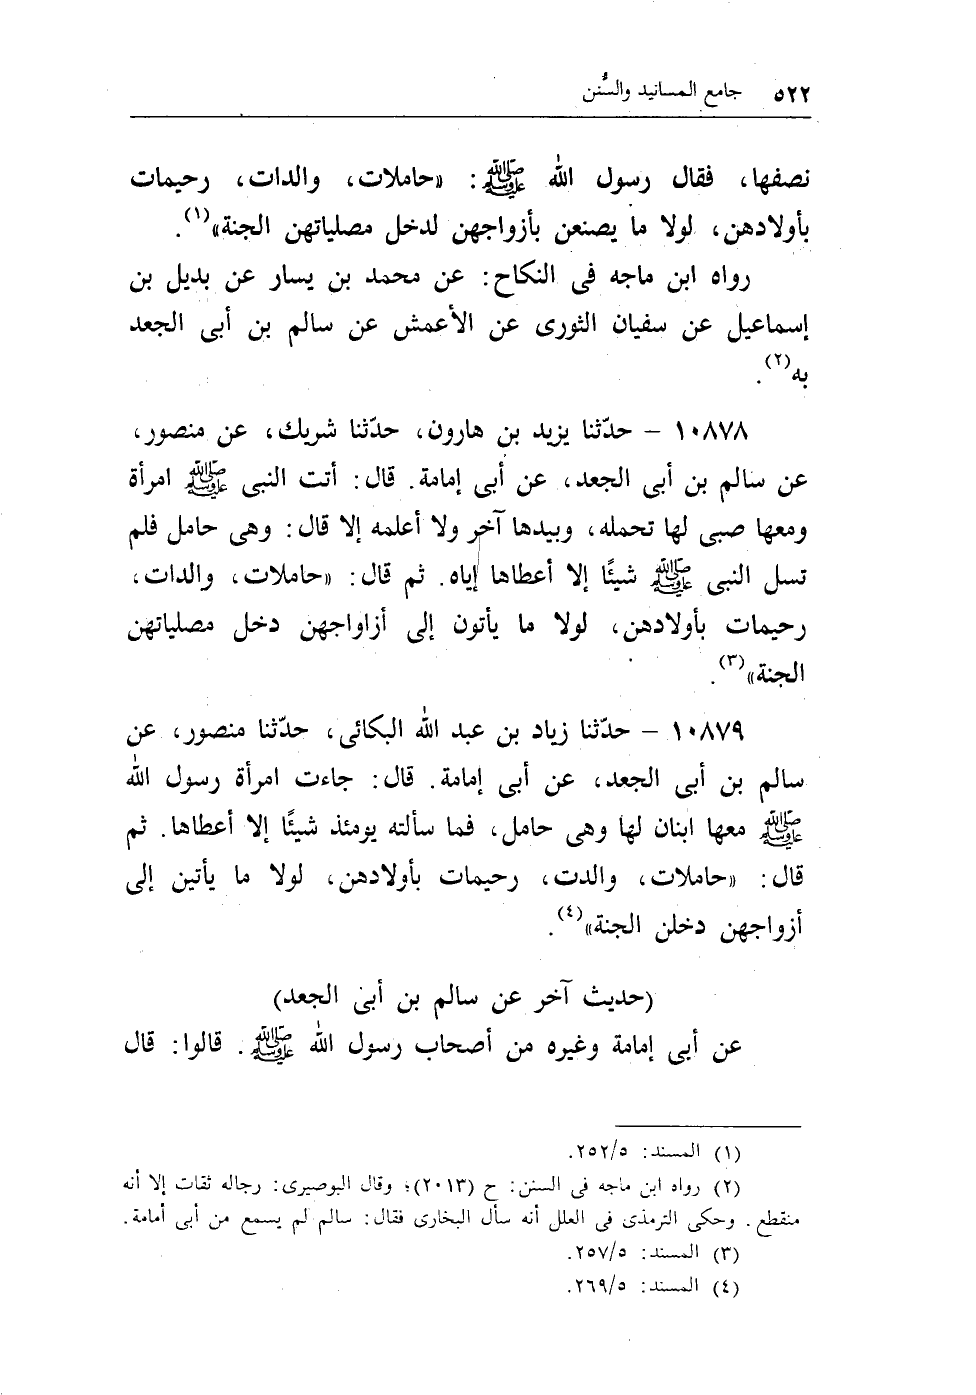 ٥٢٢ جامع المسانيد والسُّنن
نصفها، فقال رسول الله ﷺ: «حاملات، والدات، رحيمات
بأولادهن، لولا ما يصنعن بأزواجهن لدخل مصلياتهن الجنة»(١).
رواه ابن ماجه فى النكاح: عن محمد بن يسار عن بديل بن
إسماعيل عن سفيان الثورى عن الأعمش عن سالم بن أبى الجعد
به(٢).
١٠٨٧٨ - حدّثنا يزيد بن هارون، حدّثنا شريك، عن منصور،
عن سالم بن أبى الجعد، عن أبى إمامة. قال: أتت النبى ﷺ امرأة
ومعها صبى لها تحمله، وبيدها آخر ولا أعلمه إلا قال: وهى حامل فلم
تسل النبى ﷺ شيئًا إلا أعطاها إياه. ثم قال: «حاملات، والدات،
رحيمات بأولادهن، لولا ما يأتون إلى أزاواجهن دخل مصلياتهن
الجنة»(٣).
١٠٨٧٩ - حدّثنا زياد بن عبد الله البكائى، حدّثنا منصور، عن
سالم بن أبى الجعد، عن أبى إمامة. قال: جاءت امرأة رسول الله
ﷺ معها ابنان لها وهى حامل، فما سألته يومئذ شيئًا إلا أعطاها. ثم
قال: «حاملات، والدت، رحيمات بأولادهن، لولا ما يأتين إلى
أزواجهن دخلن الجنة»(٤).
(حديث آخر عن سالم بن أبى الجعد)
عن أبى إمامة وغيره من أصحاب رسول الله ﷺ. قالوا: قال
(١) المسند: ٢٥٢/٥.
(٢) رواه ابن ماجه فى السنن: ح (٢٠١٣)؛ وقال البوصيرى: رجاله ثقات إلا أنه
منقطع. وحكى الترمذى فى العلل أنه سأل البخارى فقال: سالم لم يسمع من أبى أمامة.
(٣) المسند: ٢٥٧/٥.
(٤) المسند: ٢٦٩/٥.